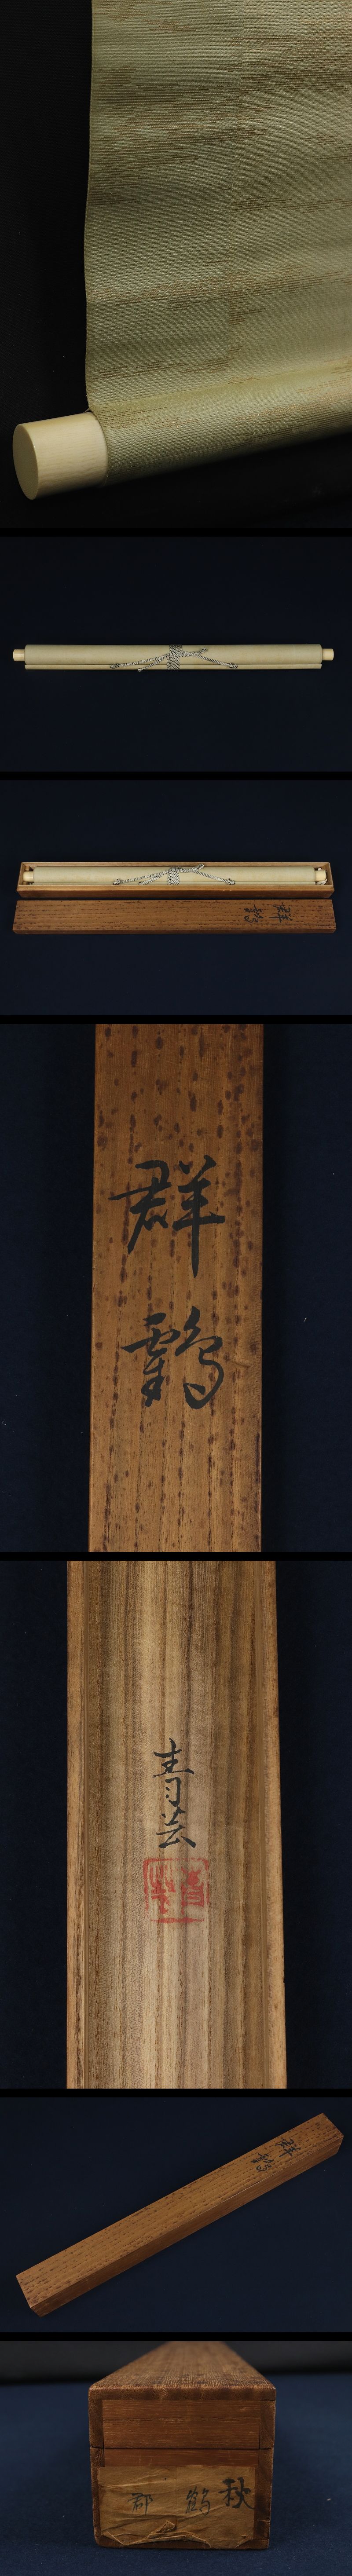 群鶴
群
鶴
青芸
群鶴
秋
鶴
郡